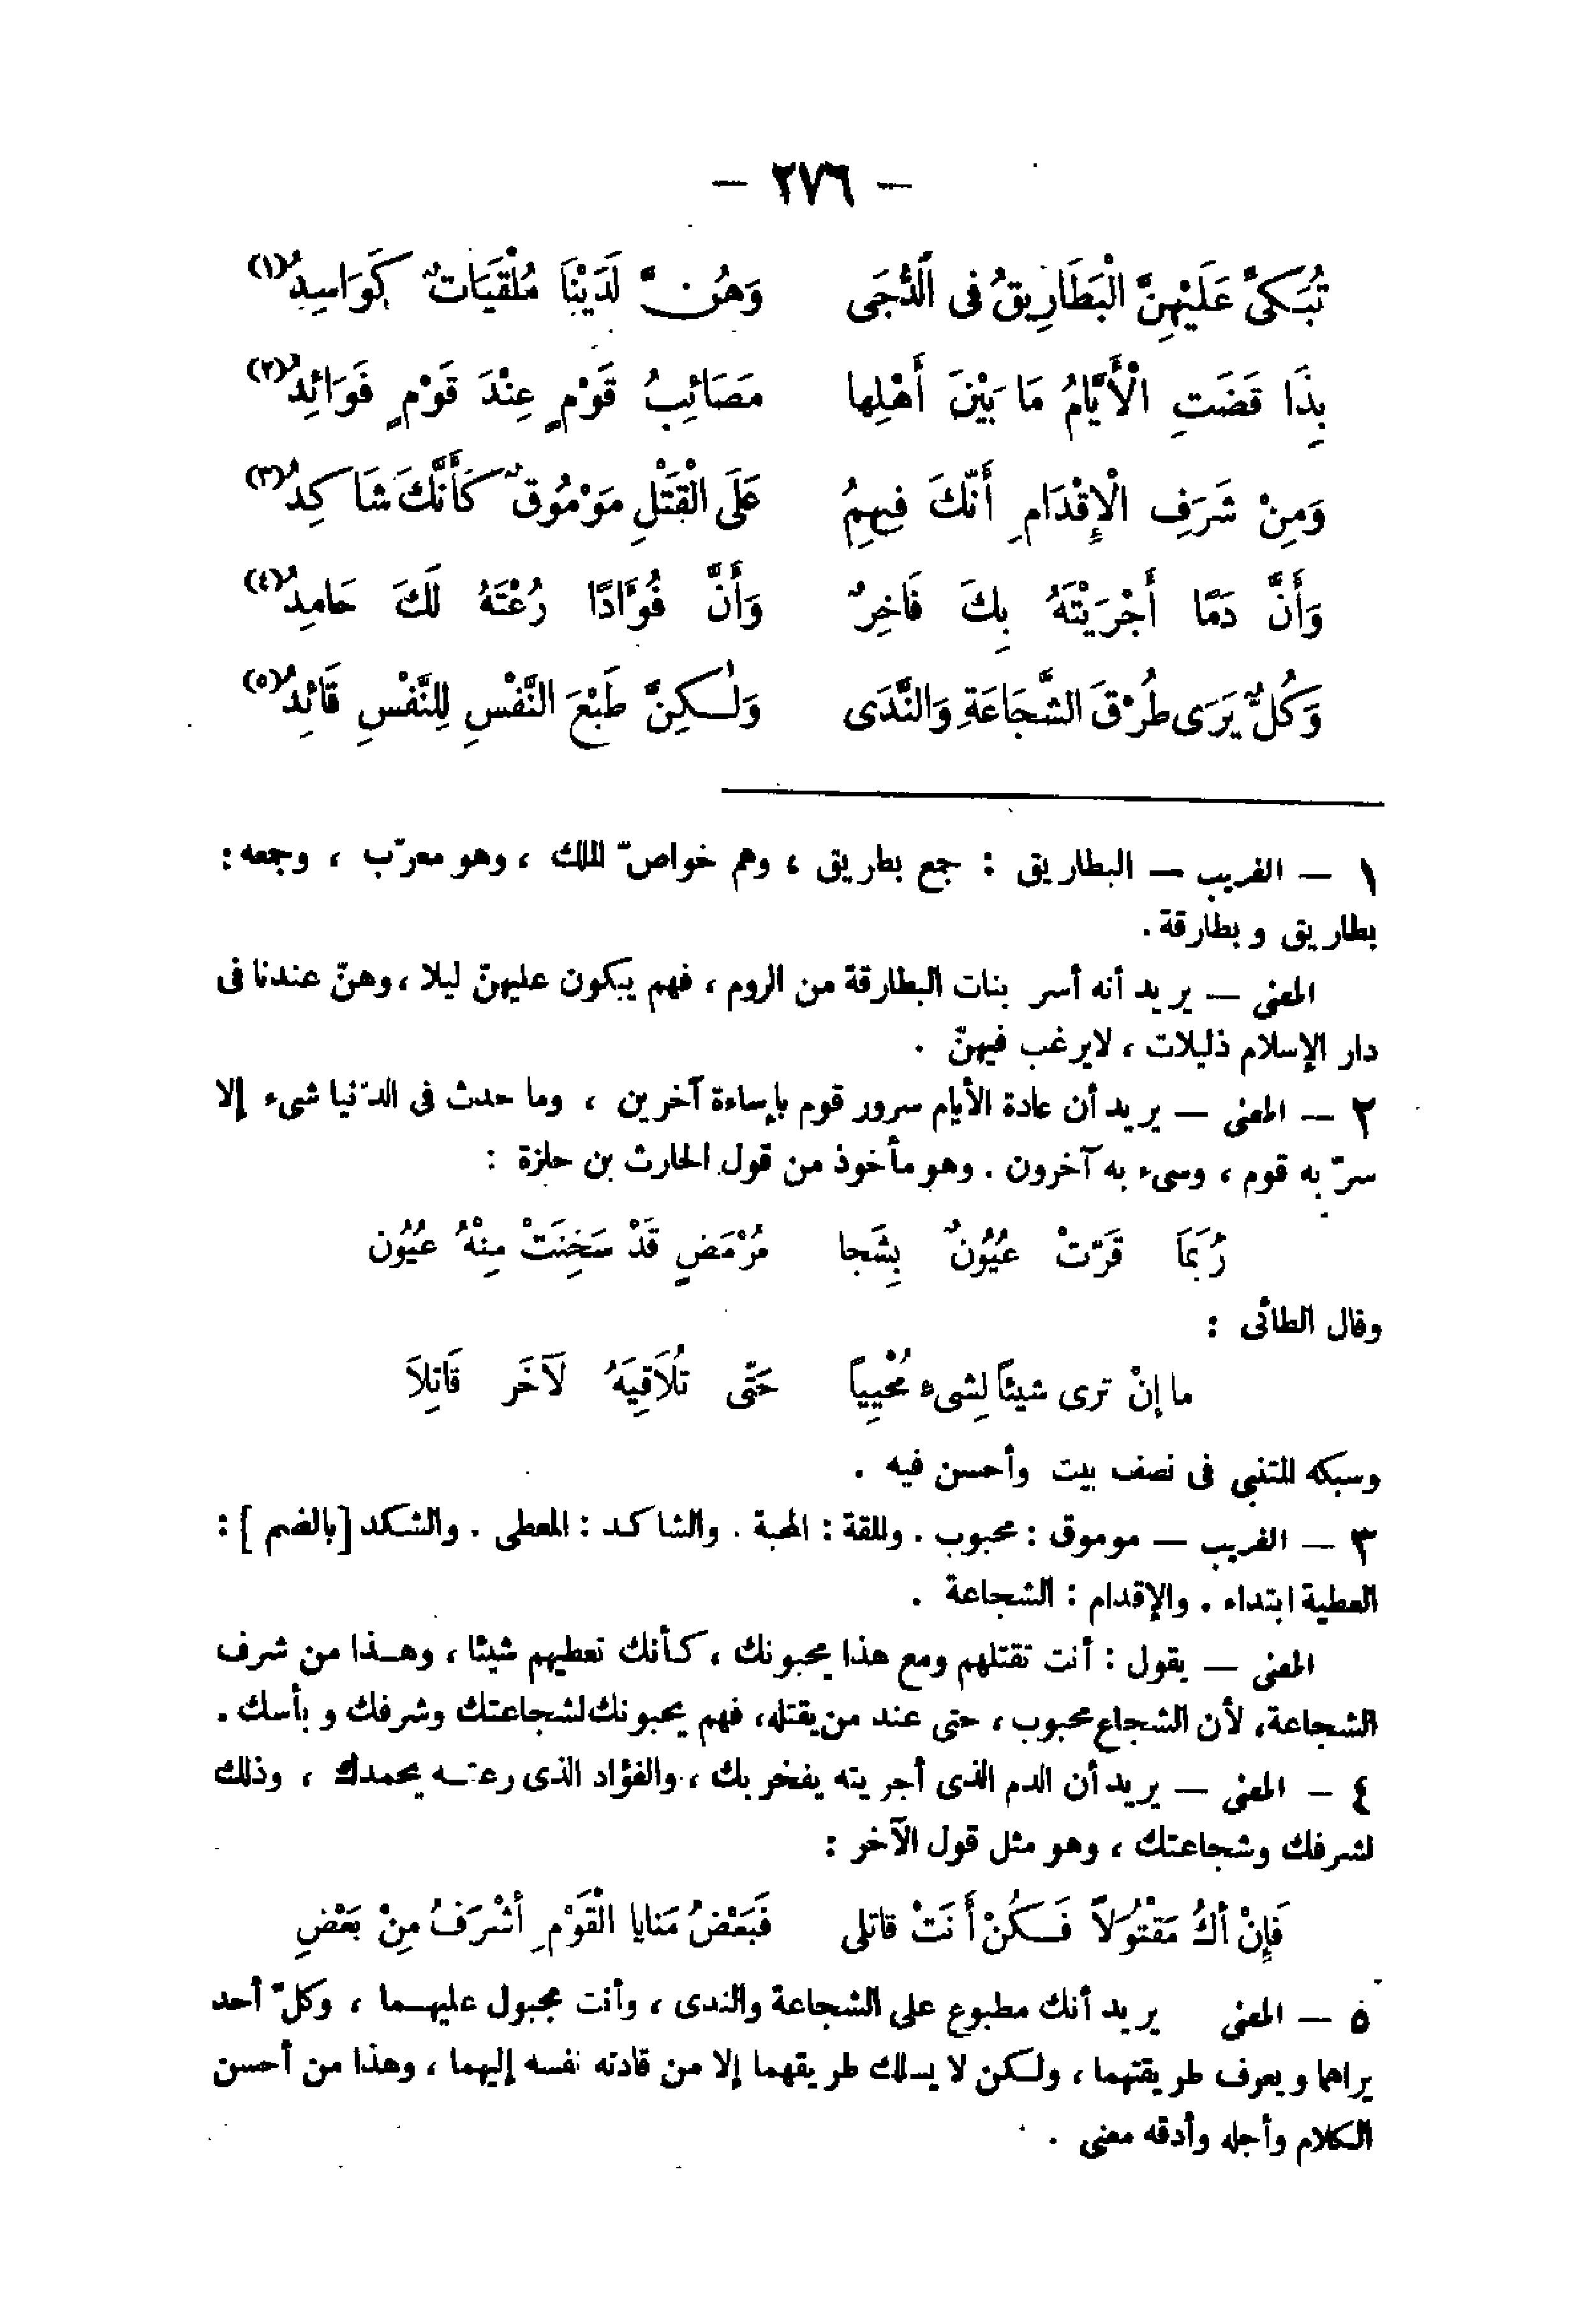 — ٢٧٦ —
تُبَكِّى عَلَيْهِنَّ الْبَطَارِيقُ فى الدُّجَى وَهُنَّ لَدَيْنَا مُلْقَيَاتٌ كَوَاسِدُ(١)
بِذَا قَضَتِ الْأَيَّامُ مَا بَيْنَ أَهْلِها مَصَائِبُ قَوْمٍ عِنْدَ قَوْمٍ فَوَائِدُ(٢)
وَمِنْ شَرَفِ الْإِقْدَامِ أَنَّكَ فِيهِمُ عَلَى الْقَتْلِ مَوْمُوقٌ كَأَنَّكَ شَاكِدُ(٣)
وَأَنَّ دَمًا أَجْرَيْتَهُ بِكَ فَاخِرٌ وَأَنَّ فُؤَادًا رُعْتَهُ لَكَ حَامِدُ(٤)
وَكُلٌّ يَرَى طُرْقَ الشَّجَاعَةِ وَالنَّدَى وَلٰكِنَّ طَبْعَ النَّفْسِ لِلنَّفْسِ قَائِدُ(٥)
١ — الغريب — البطاريق : جمع بطريق ، وهم خواصّ الملك ، وهو معرّب ، وجمعه :
بطاريق وبطارقة .
المعنى — يريد أنه أسر بنات البطارقة من الروم ، فهم يبكون عليهنّ ليلا ، وهنّ عندنا فى
دار الإسلام ذليلات ، لايرغب فيهنّ .
٢ — المعنى — يريد أن عادة الأيام سرور قوم بإساءة آخرين ، وما حدث فى الدّنيا شىء إلا
سرّ به قوم ، وسىء به آخرون . وهو مأخوذ من قول الحارث بن حلزة :
رُبَمَا قَرَّتْ عُيُونٌ بِشَجا مُرْمَضٍ قَدْ سَخِنَتْ مِنْهُ عُيُون
وقال الطائى :
ما إنْ ترى شيئاً لِشىء مُحْيِياً حَتّى تُلاَقِيَهُ لآخَر قَاتِلاَ
وسبكه المتنبى فى نصف بيت وأحسن فيه .
٣ — الغريب — موموق : محبوب . والمقة : المحبة . والشاكد : المعطى . والشكد [بالضم] :
العطية ابتداء . والإقدام : الشجاعة .
المعنى — يقول : أنت تقتلهم ومع هذا يحبونك ، كأنك تعطيهم شيئا ، وهذا من شرف
الشجاعة، لأن الشجاع محبوب ، حتى عند من يقتله، فهم يحبونك لشجاعتك وشرفك وبأسك .
٤ — المعنى — يريد أن الدم الذى أجريته يفخر بك ، والفؤاد الذى رعته يحمدك ، وذلك
لشرفك وشجاعتك ، وهو مثل قول الآخر :
فَإِنْ أكُ مَقْتُولاً فَكُنْ أَنَتْ قاتلى فَبَعْضُ مَنايا الْقَوْمِ أشْرَفُ مِنْ بَعْضِ
٥ — المعنى يريد أنك مطبوع على الشجاعة والندى ، وأنت مجبول عليهما ، وكلّ أحد
يراهما ويعرف طريقتهما ، ولكن لا يسلك طريقهما إلا من قادته نفسه إليهما ، وهذا من أحسن
الكلام وأجله وأدقه معنى .